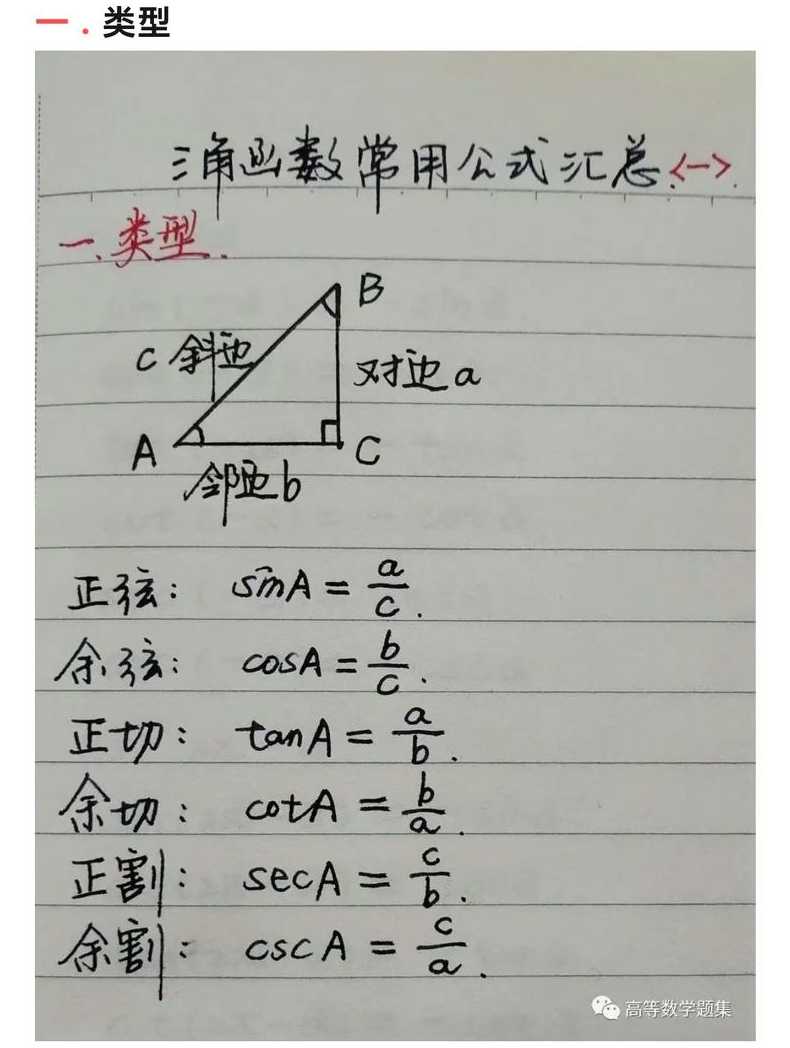 一．类型
三角函数常用公式汇总.<一>.
一.类型.
B
c 斜边
对边 a
A
C
邻边 b
正弦： sinA = a/c.
余弦： cosA = b/c.
正切： tanA = a/b.
余切： cotA = b/a.
正割： secA = c/b.
余割： cscA = c/a.
高等数学题集